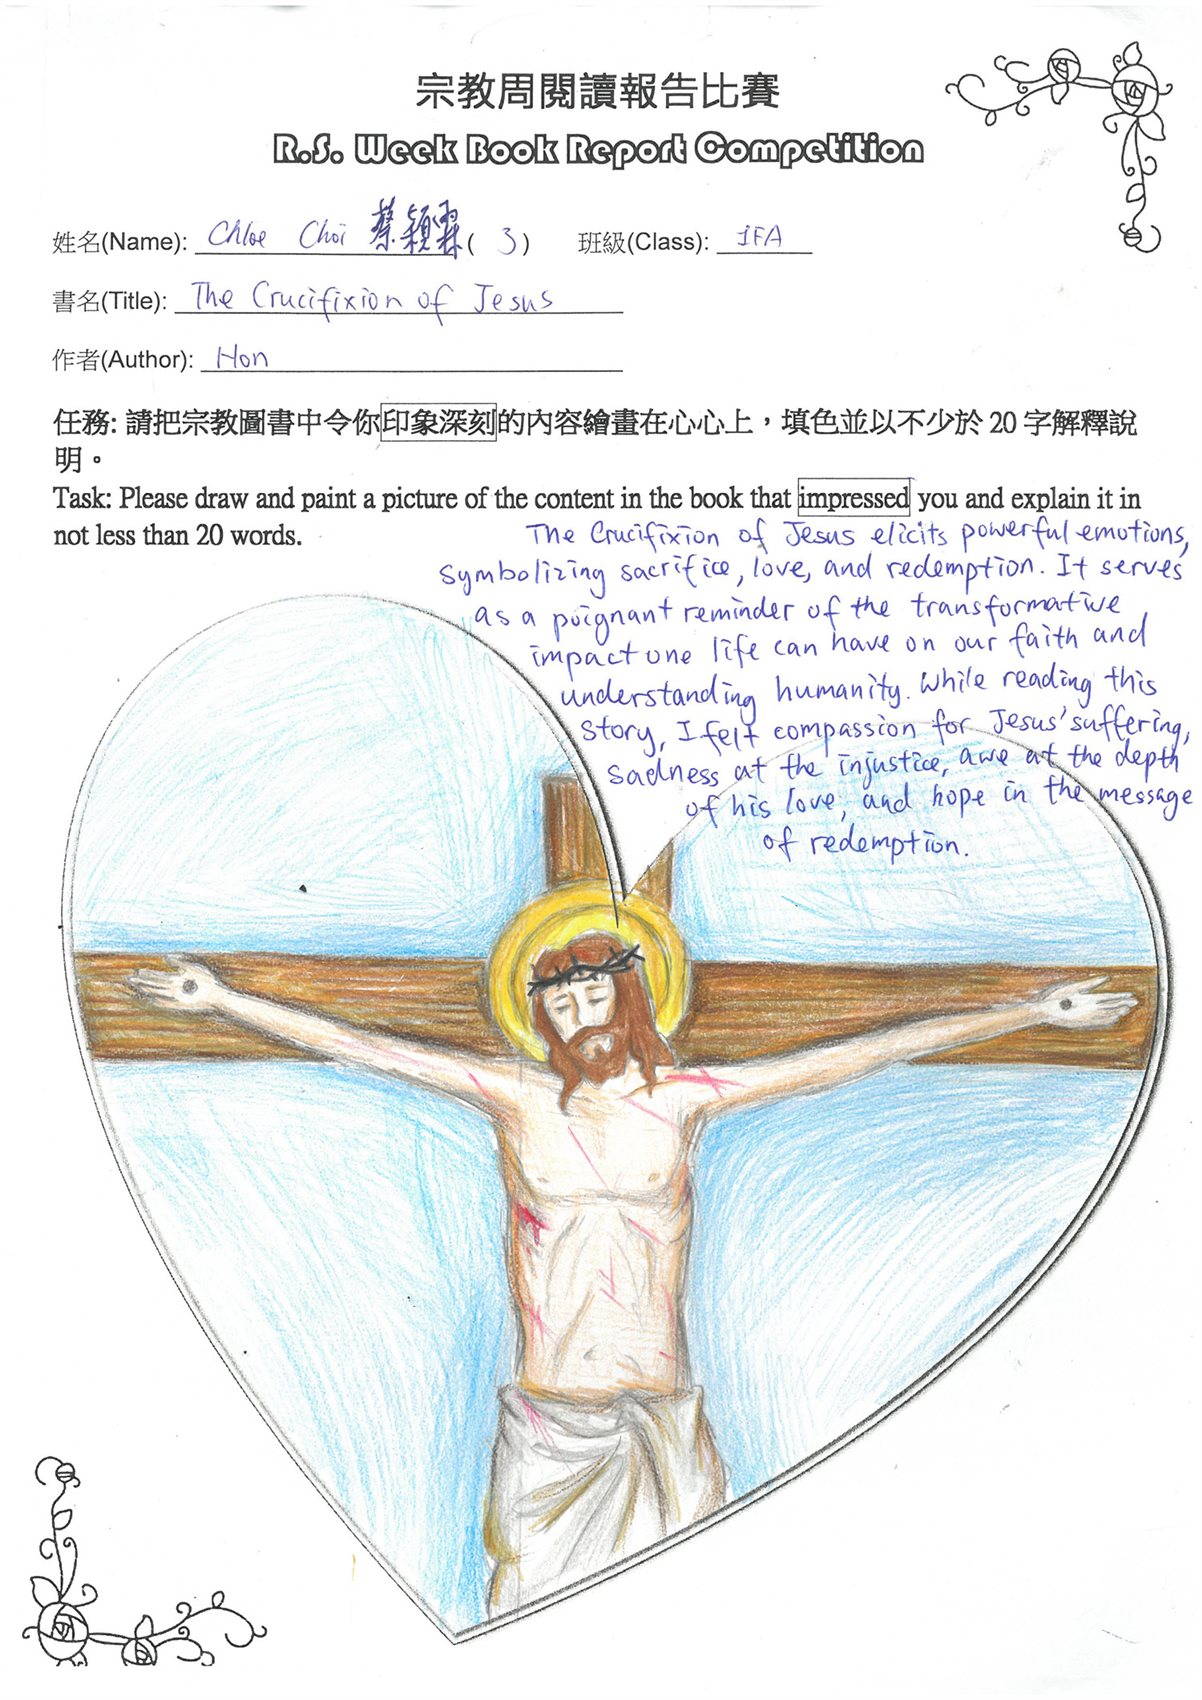 宗教周閱讀報告比賽
R.S. Week Book Report Competition
姓名(Name): Chloe Choi 蔡穎霖 ( 3 ) 班級(Class): 1FA
書名(Title): The Crucifixion of Jesus
作者(Author): Hon
任務: 請把宗教圖書中令你印象深刻的內容繪畫在心心上，填色並以不少於 20 字解釋說
明。
Task: Please draw and paint a picture of the content in the book that impressed you and explain it in
not less than 20 words.
The Crucifixion of Jesus elicits powerful emotions,
symbolizing sacrifice, love, and redemption. It serves
as a poignant reminder of the transformative
impact one life can have on our faith and
understanding humanity. While reading this
story, I felt compassion for Jesus' suffering,
sadness at the injustice, awe at the depth
of his love, and hope in the message
of redemption.